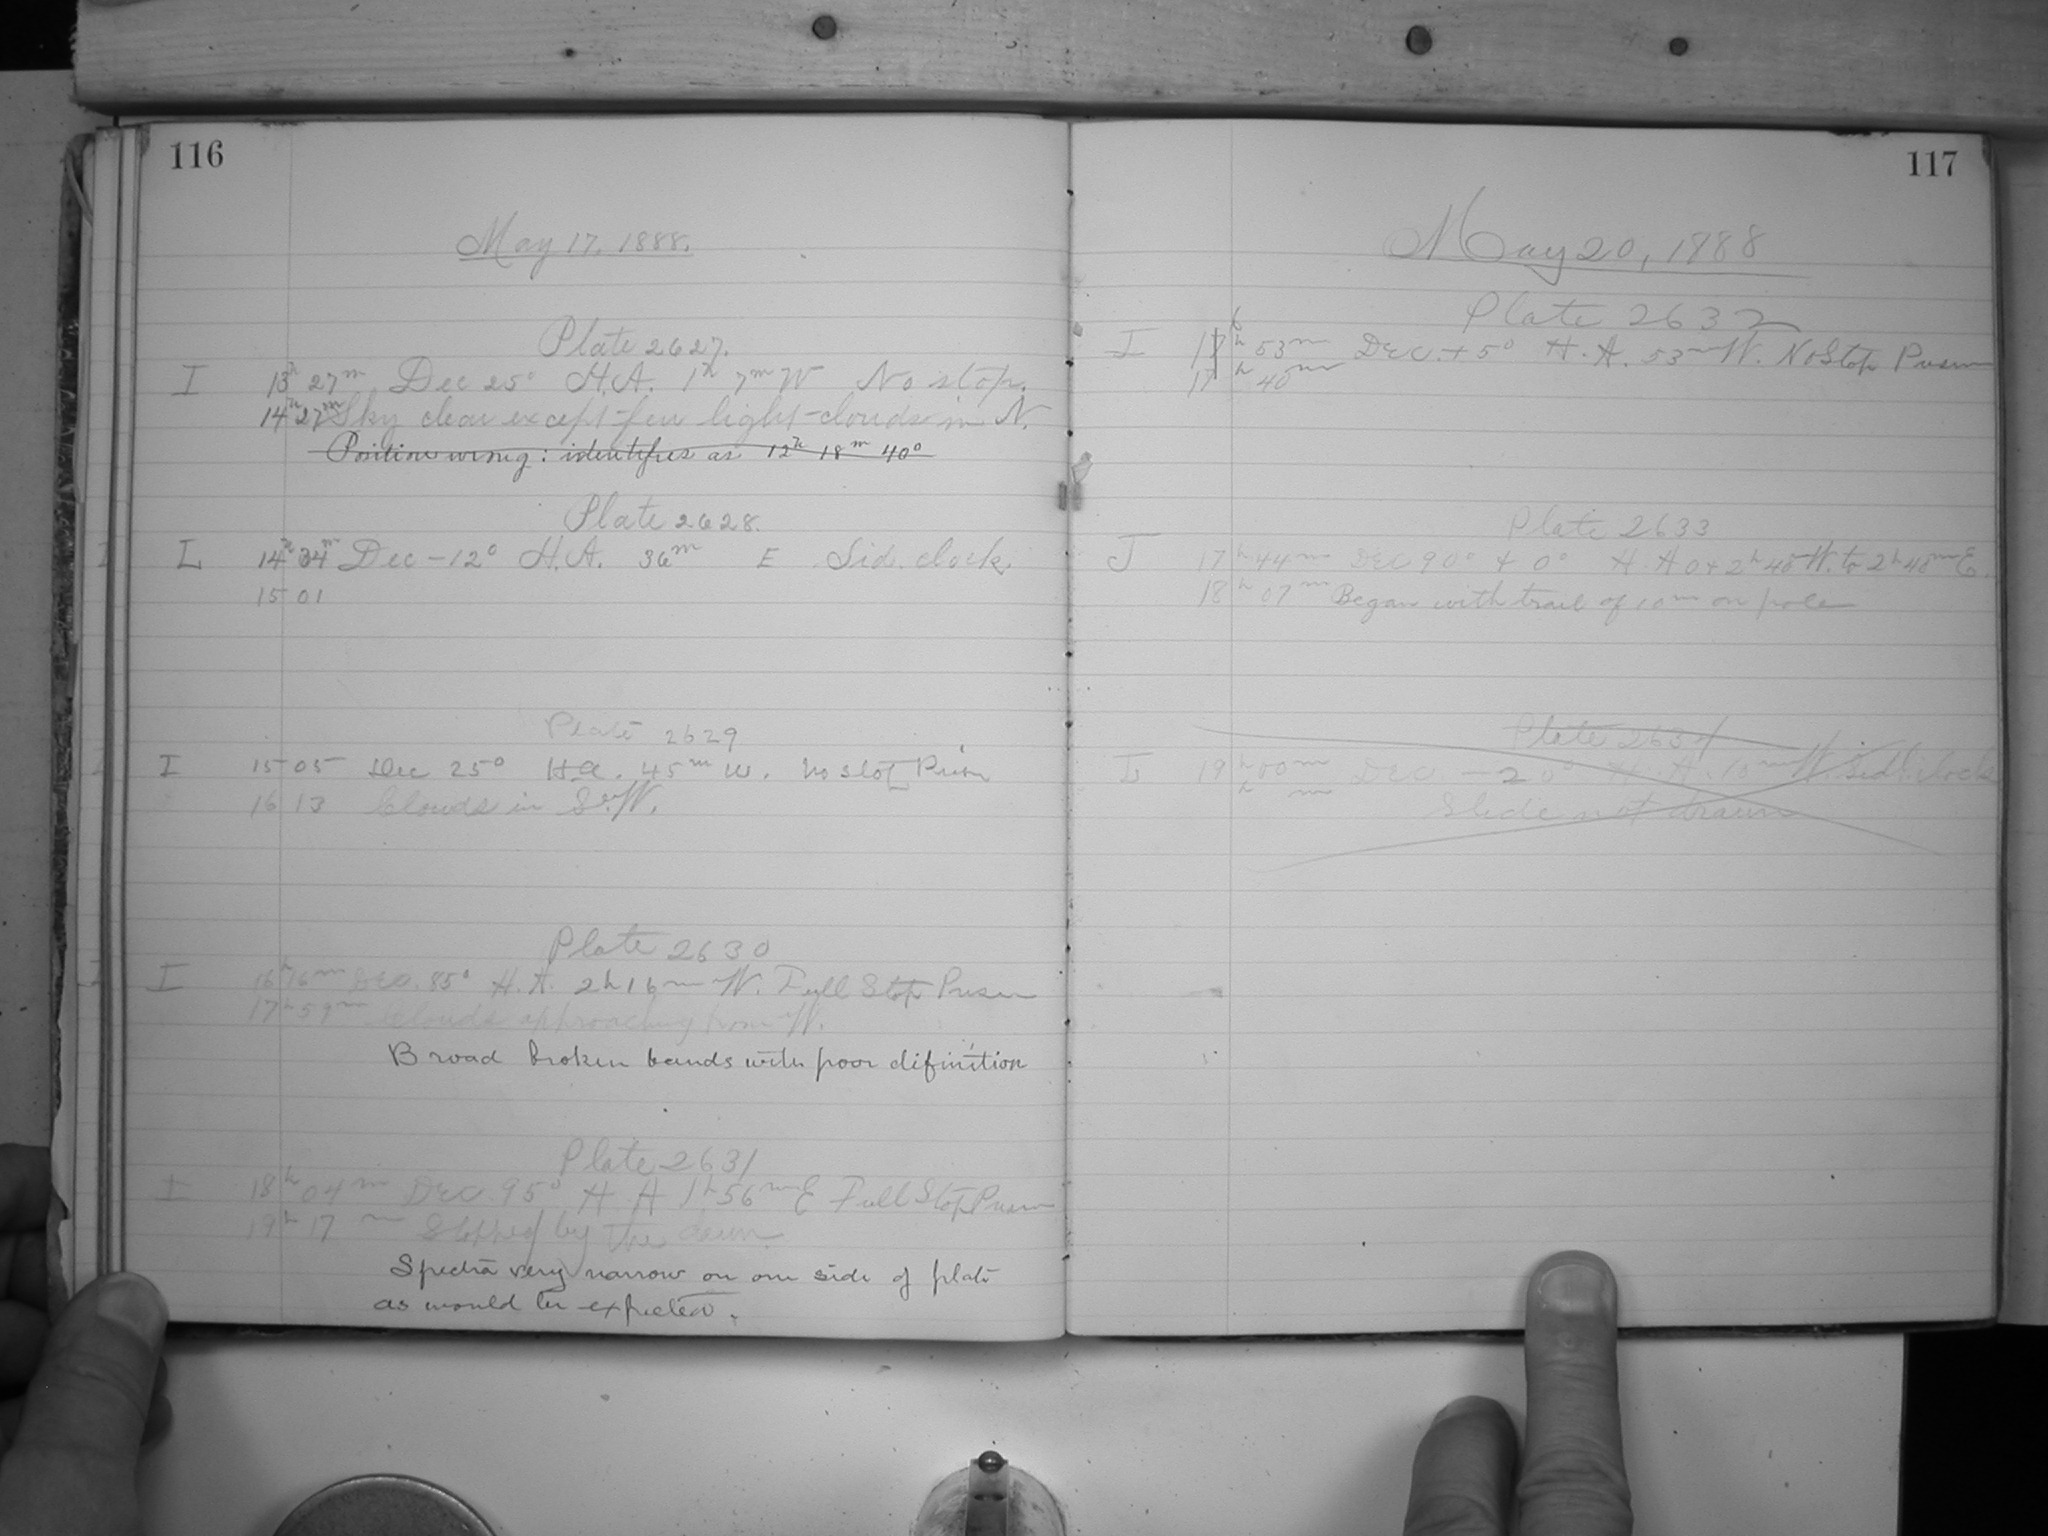 116
May 17, 1888.
Plate 2627.
I 13h 27m Dec 25° H.A. 1h 7m W No stop.
14h 27m Sky clear except few light clouds in N.
Position wrong: identifies as 12h 18m 40°
Plate 2628.
I L 14h 34m Dec -12° H.A. 36m E Sid. clock.
15 01
Plate 2629
I 15 05 Dec 25° H.A. 45m W. No stop Prism
16 13 Clouds in S.W.
Plate 2630
I 16h 16m Dec. 85° H.A. 2h 16m W. Full Stop Prism
17h 59m Clouds approaching from W.
Broad broken bands with poor difinition
Plate 2631
I 18h 04m Dec 95° H.A 1h 56m E Full Stop Prism
19h 17m Stopped by the dawn
Spectra very narrow on one side of plate
as would be expected.
117
May 20, 1888
Plate 2632
I 16h 53m Dec. +5° H.A. 53m W. No Stop Prism
17h 40m
Plate 2633
J 17h 44m Dec 90° + 0° H.A 0 + 2h 48 W. to 2h 48m E.
18h 07m Began with trail of 10m on pole
Plate 2634
L 19h 00m Dec. -20° H.A. 10m W. Sid. clock
h m
Slide not drawn